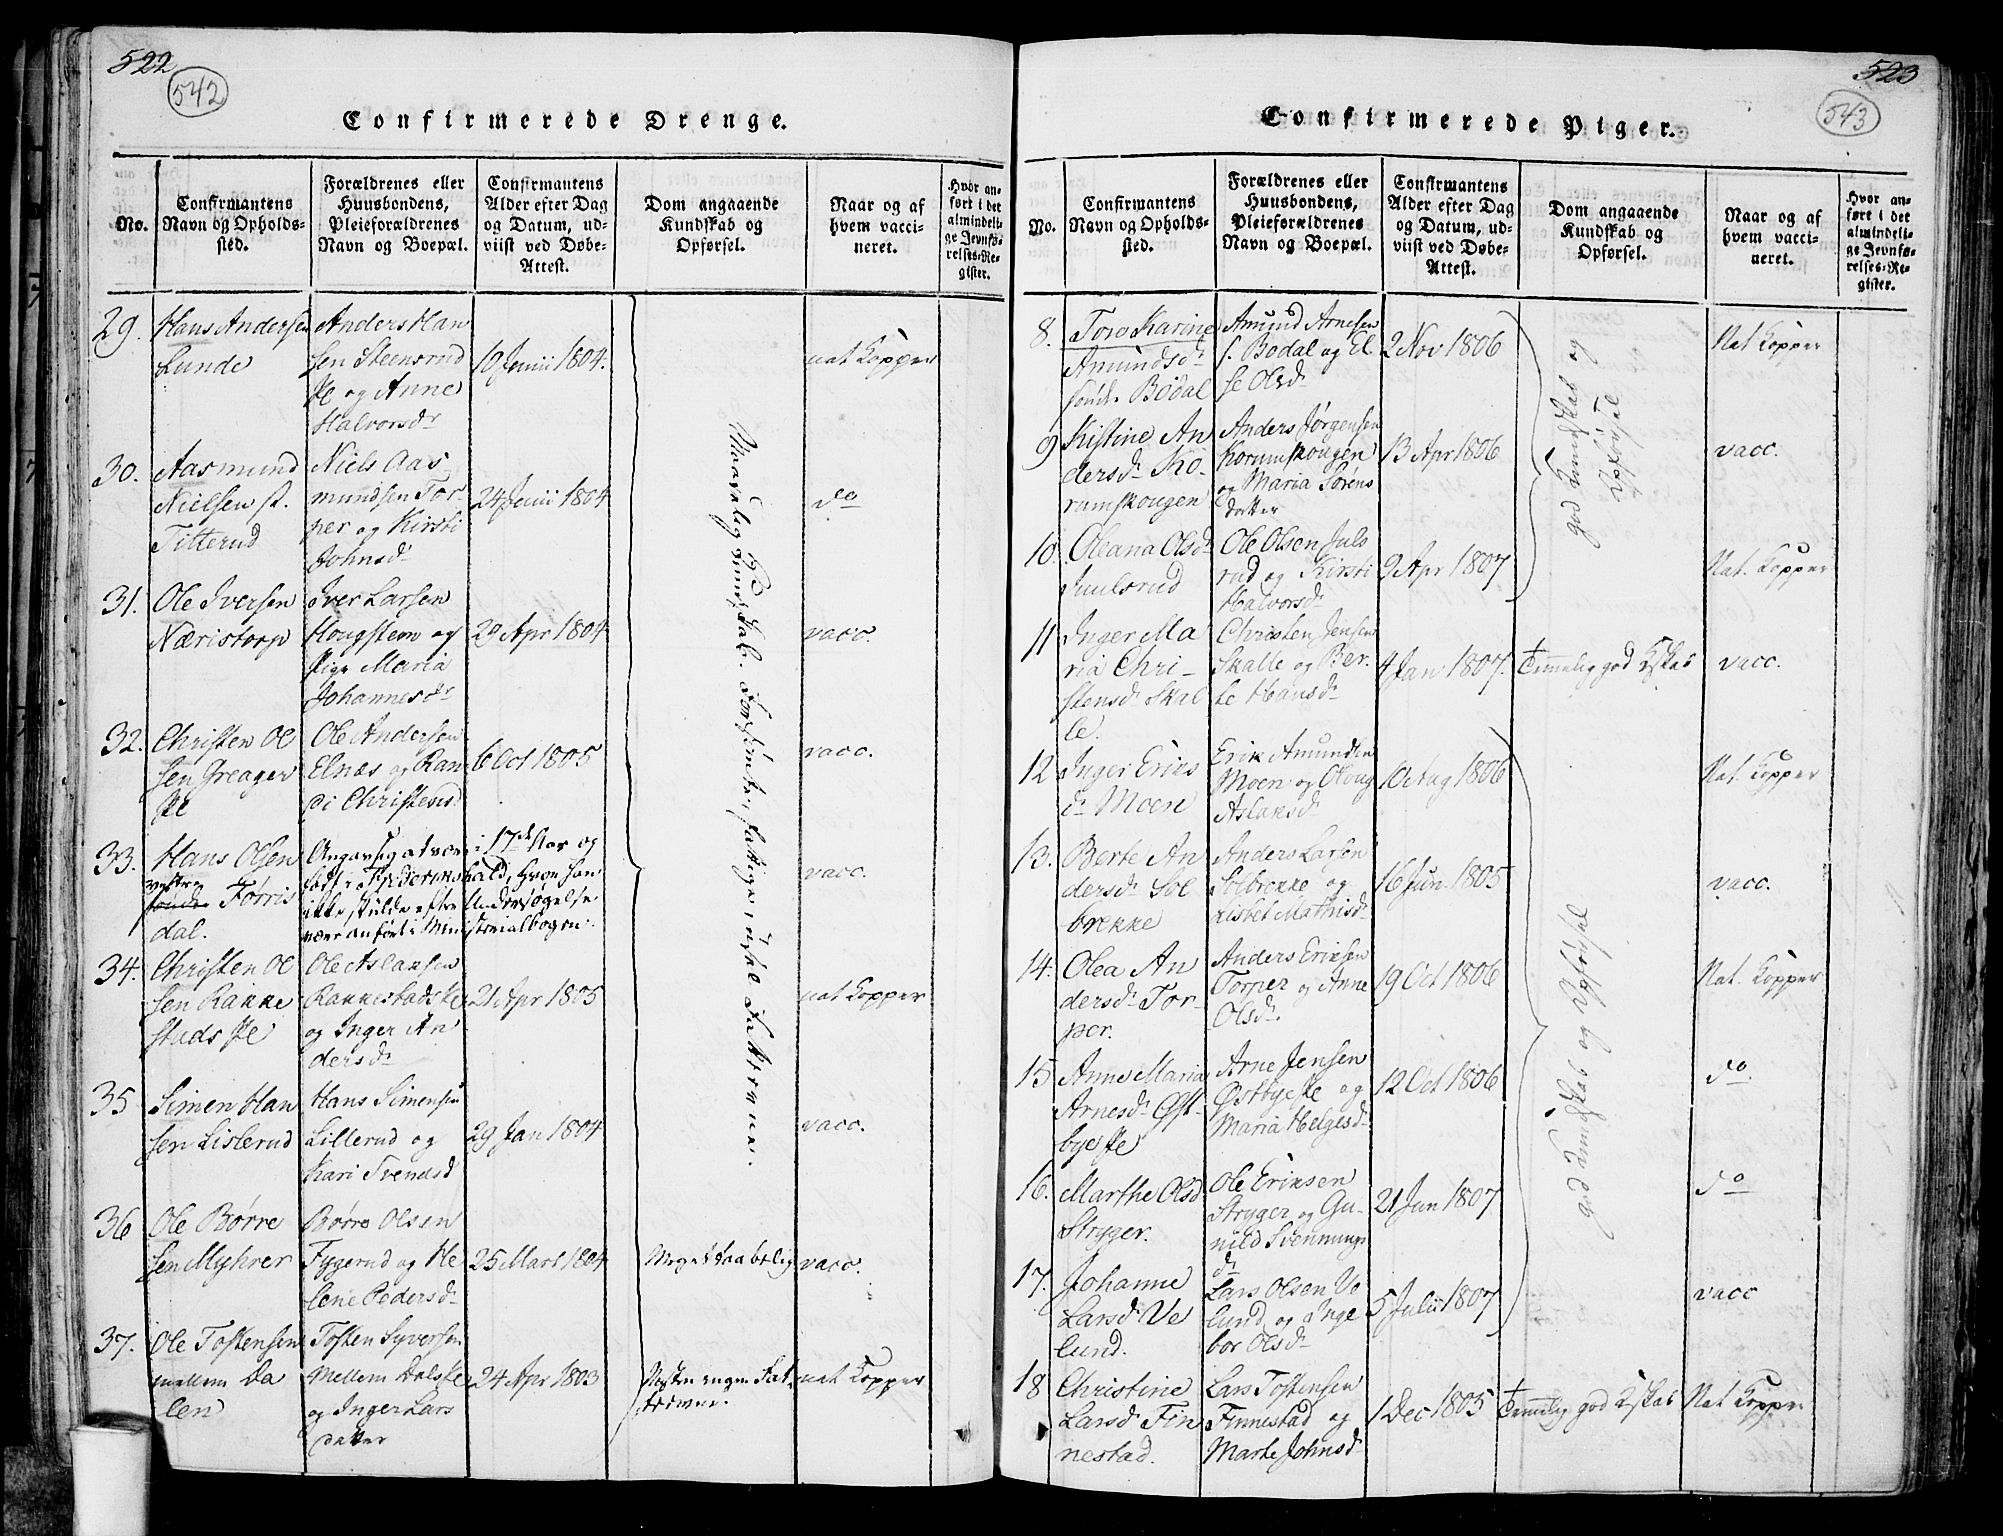 522
542
Confirmerede Drenge.
No.
Confirmantens
Navn og Opholds-
sted.
Forældrenes eller
Huusbondens,
Pleieforældrenes
Navn og Boepæl.
Confirmantens
Alder efter Dag
og Datum, ud-
viist ved Døbe-
Attest.
Dom angaaende
Kundskab og
Opførsel.
Naar og af
hvem vacci-
neret.
Hvor an-
ført i det
almindeli-
ge Jevnfø-
relses-Re-
gister.
29.
Hans Andersen
Lunde
Anders Han
sen Steensrud
Ie og Anne
Halvorsdr
10 Junii 1804.
nat Kopper
30.
Aasmund
Nielsen
Titterud
Niels Aas
mundsen Tor
per og Kirsti
Johnsdr
24 Junii 1804
do
31.
Ole Iversen
Næristorp
Iver Larsen
Hougsteen og
Pige Maria
Johannesdr
29 Apr 1804
vacc.
32.
Christen Ol
sen Greager
Ie
Ole Andersen
Elnæs og Ran
di Christensd
6 Oct 1805
vacc.
33.
Hans Olsen
vestre
Tørris
dal.
Angav sig at være i 17de Aar og
født i Friderikshald, hvor han
ikke skulde efter Undersøgelse
være anført i Ministerialbogen.
vacc.
34.
Christen Ol
sen Rakke
stads Ie
Ole Aslaksen
Rakkestads Ie
og Inger An
dersdr
21 Apr 1805
nat Kopper
35
Simen Han
sen Lislerud
Hans Simensen
Lillerud og
Kari Svendsd
29 Jan 1804
vacc.
36
Ole Børre
sen Myhrer
Børre Olsen
Fygerud og He
lene Pedersdr
25 Mart 1804
Meget taabelig
vacc.
37.
Ole Tostensen
mellem Da
len
Tosten Syversen
Mellem Dals Ie
og Inger Lars
datter
24 Apr 1803
Næsten ingen Fat
teevne.
nat Kopper
Maadelig Kundskab. Forsømte, fattige, uslel Fatteevne.
523
543
Confirmerede Piger.
No.
Confirmantens
Navn og Opholds-
sted.
Forældrenes eller
Huusbondens,
Pleieforældrenes
Navn og Boepæl.
Confirmantens
Alder efter Dag
og Datum, ud-
viist ved Døbe-
Attest.
Dom angaaende
Kundskab og
Opførsel.
Naar og af
hvem vacci-
neret.
Hvor an-
ført i det
almindeli-
ge Jevnfø-
relses-Re-
gister.
8.
Toro Karine
Amundsdr
søndr Bödal
Amund Arnesen
s. Bødal og El
se Olsdr
2 Nov 1806
Nat Kopper
9
Kistine An
dersdr Ko-
rumskougen
Anders Jørgensen
Korumskougen
og Maria Sørens
datter
13 Apr 1806
vacc.
10.
Oleana Olsdr
Juulsrud
Ole Olsen Juls
rud og Kirsti
Halvorsdr
9 Apr 1807
Nat. Kopper
god Kundskab og
Opførsel
11
Inger Ma
ria Chri-
stensdr Skal
le.
Christen Jensen
Skalle og Ber
te Hansdr
4 Jan 1807.
Temmelig god Kskab
vacc.
12
Inger Eriks
dr Moen
Erik Amundsen
Moen og Olaug
Aslaksdr
10 Aug 1806
Nat. Kopper
13.
Berte An
dersdr Sol
brekke
Anders Larsen
Solbrekke og
Lisbet Mathisdr
16 Jun. 1805
vacc.
14.
Olea An
dersdr Tor-
per.
Anders Eriksen
Torper og Anne
Olsdr
19 Oct 1806
Nat. Kopper
15
Anne Maria
Arnesdr Øst-
bye Ie
Arne Jensen
Østbye Ie og
Maria Helgesdr
12 Oct 1806
do
16.
Marthe Olsd
Stryger.
Ole Eriksen
Stryger og Gu-
nild Svennungs
dr
21 Jun 1807
do
17.
Johanne
Larsdr Ve
lund.
Lars Olsen Ve
lund og Inge
bor Olsdr
5 Julii 1807
vacc
god Kundskab og Opførsel
18
Christine
Larsdr Fin
nestad.
Lars Tostensen
Finnestad og
Marte Johnsdr
1 Dec 1805
Temmelig god Kskab
Nat Kopper